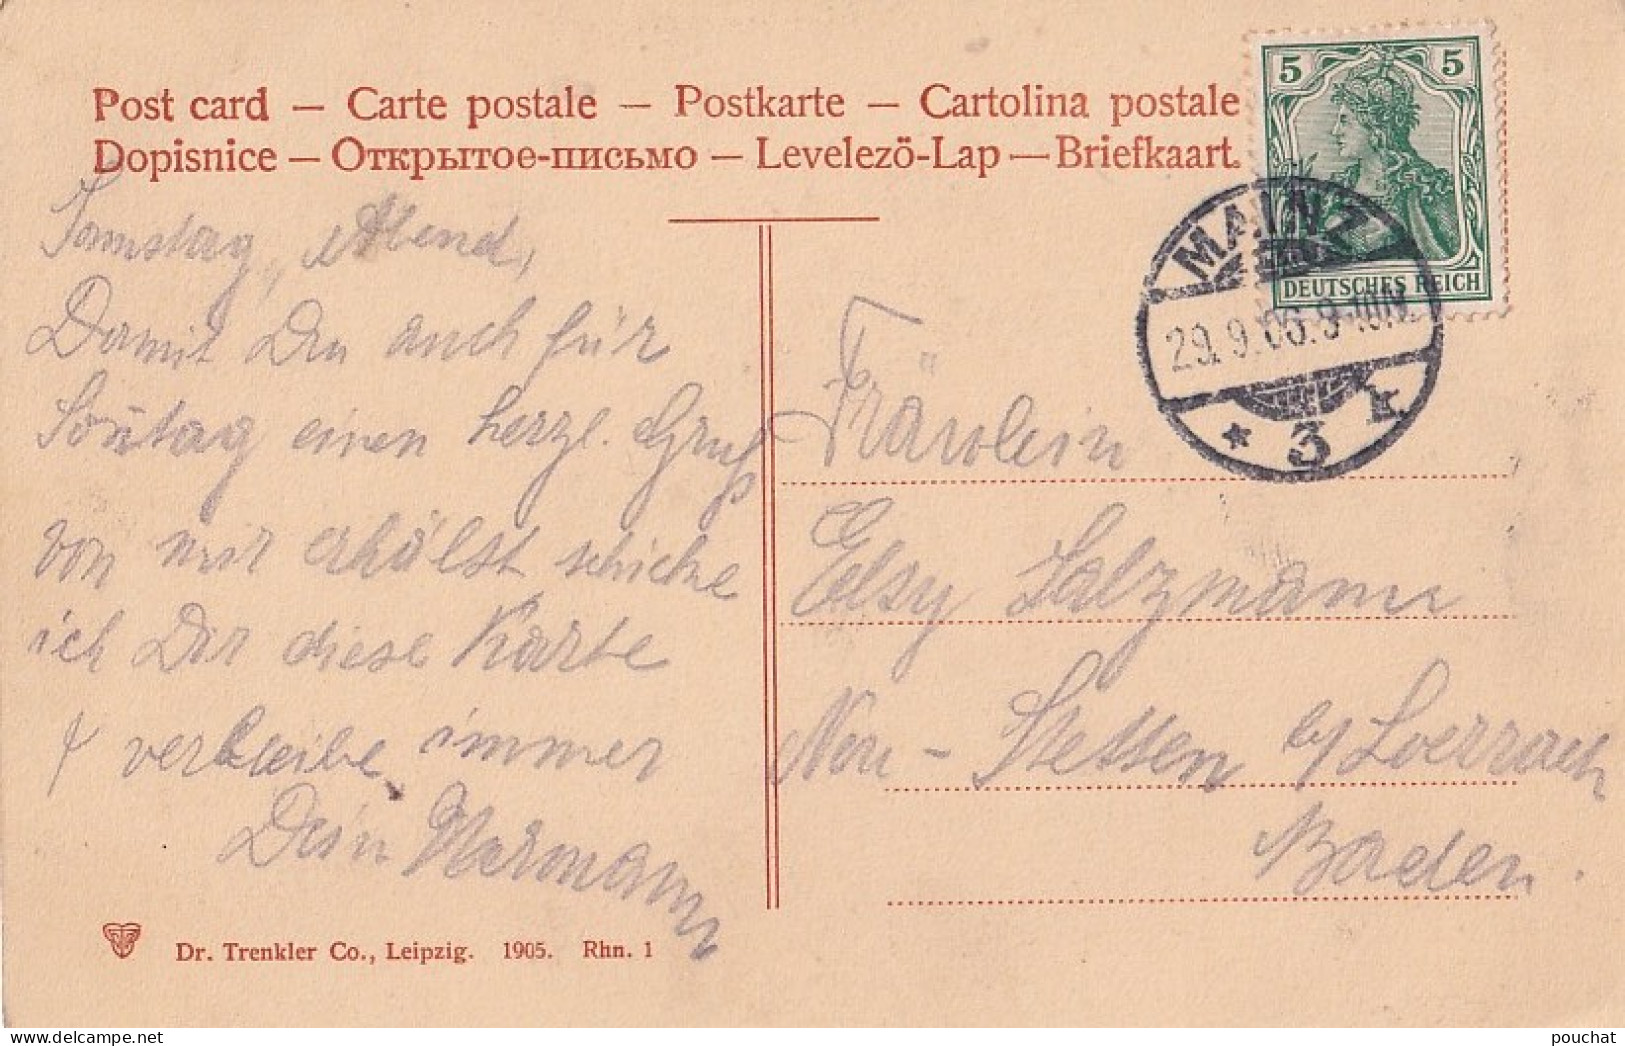 Post card — Carte postale — Postkarte — Cartolina postale
Dopisnice — Открытое-письмо — Levelezö-Lap — Briefkaart.
5 5
DEUTSCHES REICH
MAINZ
29.9.06.9-10N.
* 3 k
Samstag, Abend,
Damit Du auch für
Sonntag einen herzl. Gruß
von mir erhälst schicke
ich Dir diese Karte
& verbleibe immer
Dein Hermann
Fräulein
Elsy Salzmann
Neu-Stetten by Loerrach
Baden.
Dr. Trenkler Co., Leipzig. 1905. Rhn. 1
pouchat